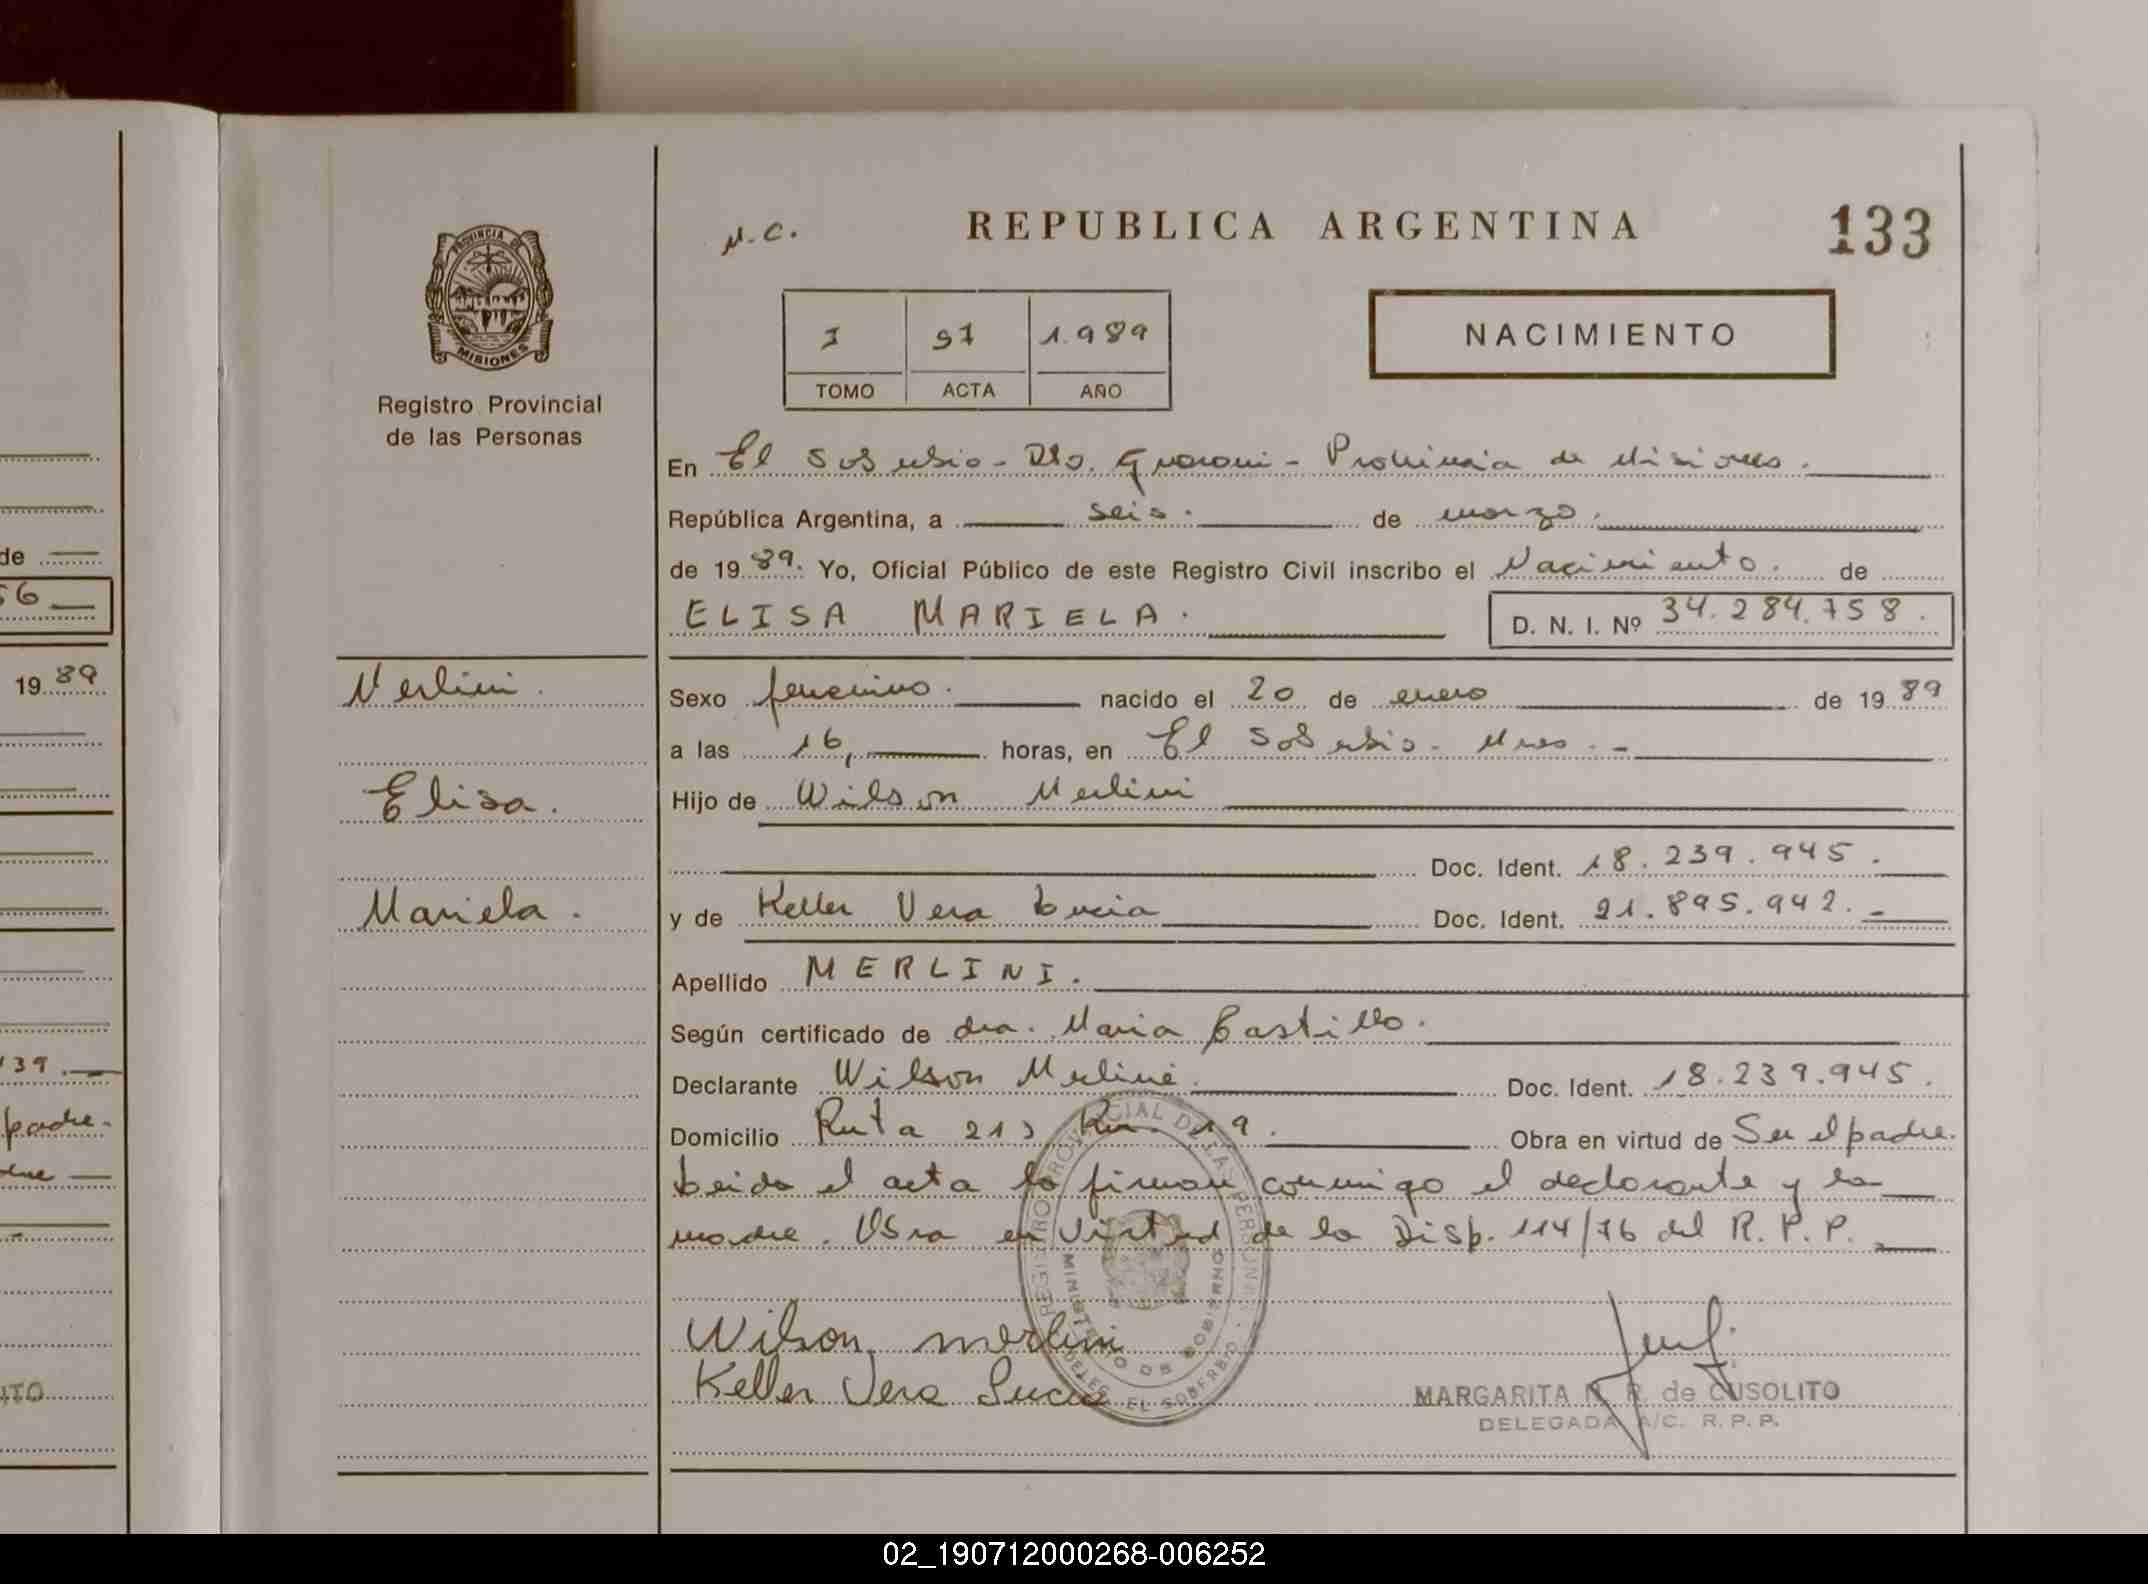 M.C.
REPUBLICA ARGENTINA
133
PROVINCIA DE
MISIONES
Registro Provincial
de las Personas
I 97 1.989
TOMO ACTA AÑO
NACIMIENTO
En El Soberbio - Dto. Guarani - Provincia de Misiones.
República Argentina, a seis. de marzo.
de 1989. Yo, Oficial Público de este Registro Civil inscribo el Nacimiento. de
ELISA MARIELA.
D. N. I. Nº 34.284.758.
Merlini.
Elisa.
Mariela.
Sexo femenino. nacido el 20 de enero de 1989
a las 16, horas, en El Soberbio - Mnes. -
Hijo de Wilson Merlini
Doc. Ident. 18.239.945.
y de Keller Vera Lucia Doc. Ident. 21.895.942. -
Apellido MERLINI.
Según certificado de dra. Maria Castillo.
Declarante Wilson Merlini. Doc. Ident. 18.239.945.
Domicilio Ruta 21, Km. 19. Obra en virtud de Ser el padre.
Leida el acta la firman conmigo el declarante y la
madre. Obra en virtud de la Disp. 114/76 del R.P.P.
Wilson merlini
Keller Vera Lucia
REGISTRO PROVINCIAL DE LAS PERSONAS
MINISTERIO DE GOBIERNO
EL SOBERBIO
MARGARITA R. de CUSOLITO
DELEGADA A/C. R.P.P.
de
56
19 89
139.
padre.
02_190712000268-006252